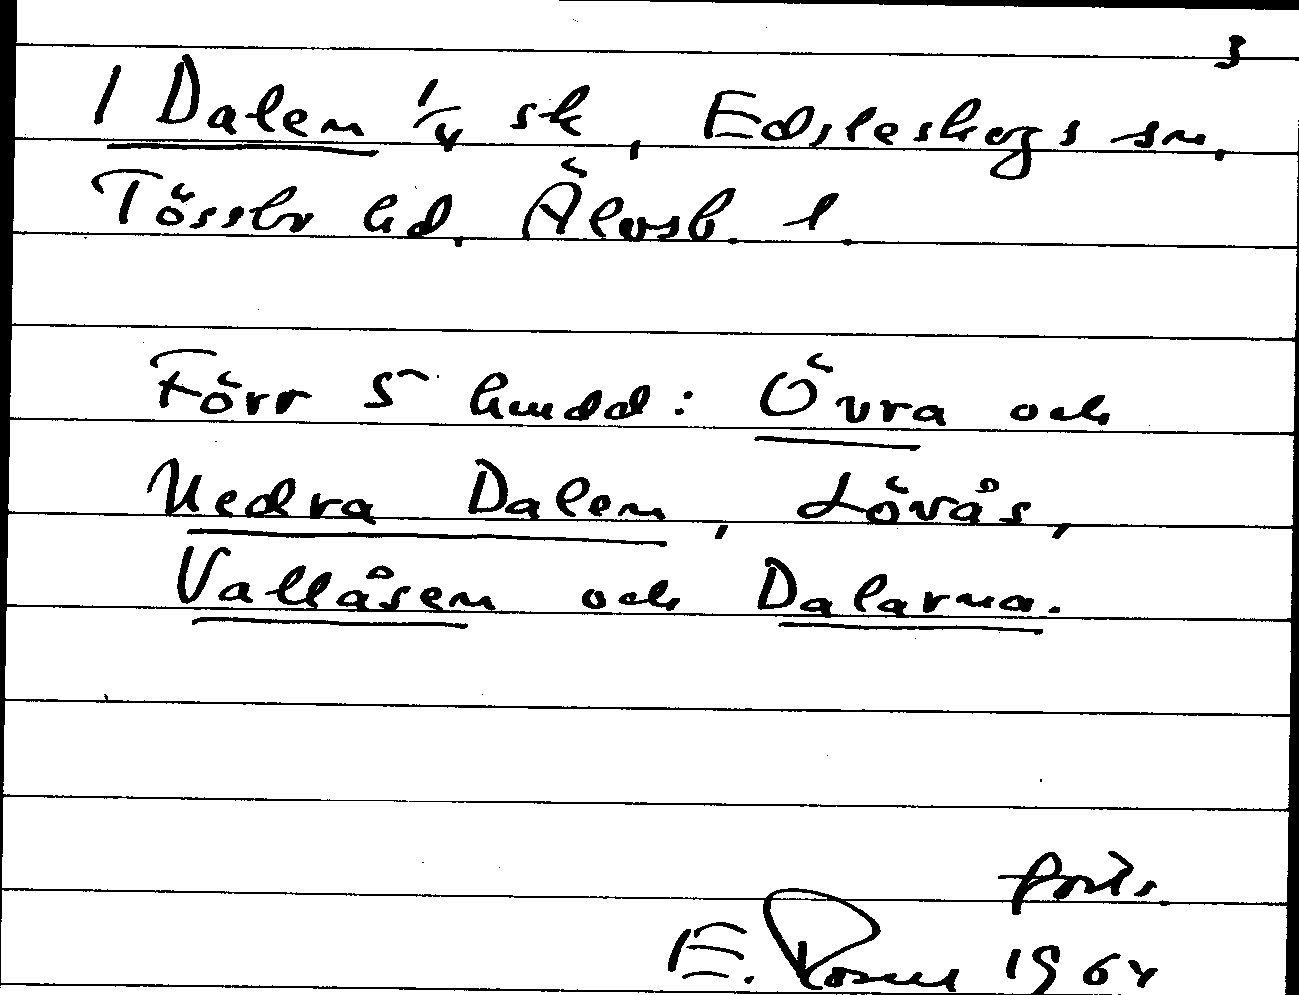 3
1 Dalen 1/4 sk, Edsleskogs sn.
Tössbo hd, Älvsb. l.
Förr 5 hmdd: Övra och
Nedra Dalen, Lövås,
Vallåsen och Dalarna.
forts.
E. Rosell 1964